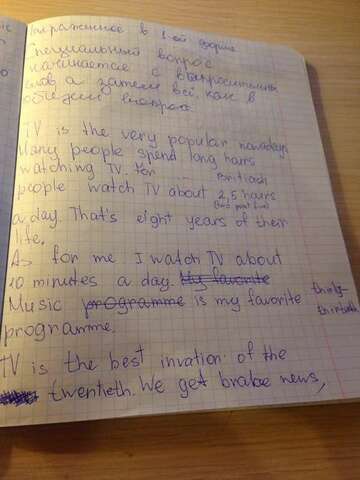 выраженное в 1-ой форме
Специальный вопрос
начинается с вопросительн
слов а затем всё, как в
общем вопрос
TV is the very popular nowadays
Many people spend long hours
watching TV. For British
people watch TV about 2,5 hours
a day. That's eight years of their
life.
As for me I watch TV about
10 minutes a day. My favorite
Music programme is my favorite
programme.
TV is the best invation of the
twentieth. We get brake news,